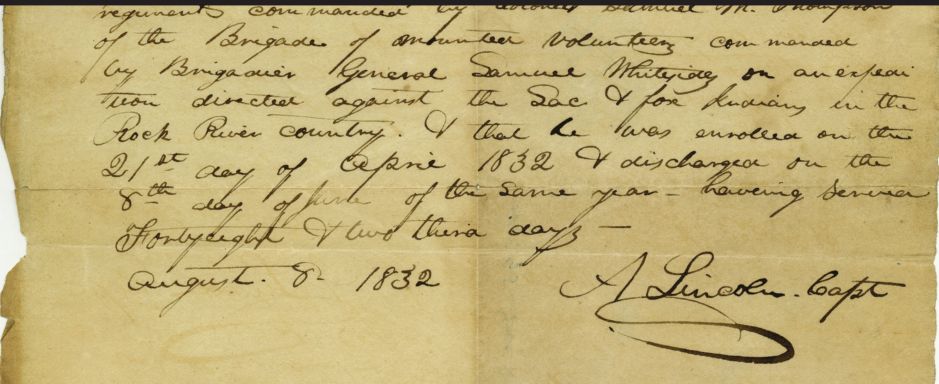 regiments commanded by Colonel Samuel M. Thompson
of the Brigade of mounted volunteers commanded
by Brigadier General Samuel Whitesides on an expedi
tion directed against the Sac & fox Indians in the
Rock River country. & that he was enrolled on the
21st day of April 1832 & discharged on the
8th day of June of the same year - haveing served
Fortyeight & two third days -
August. 8- 1832
A Lincoln. Capt